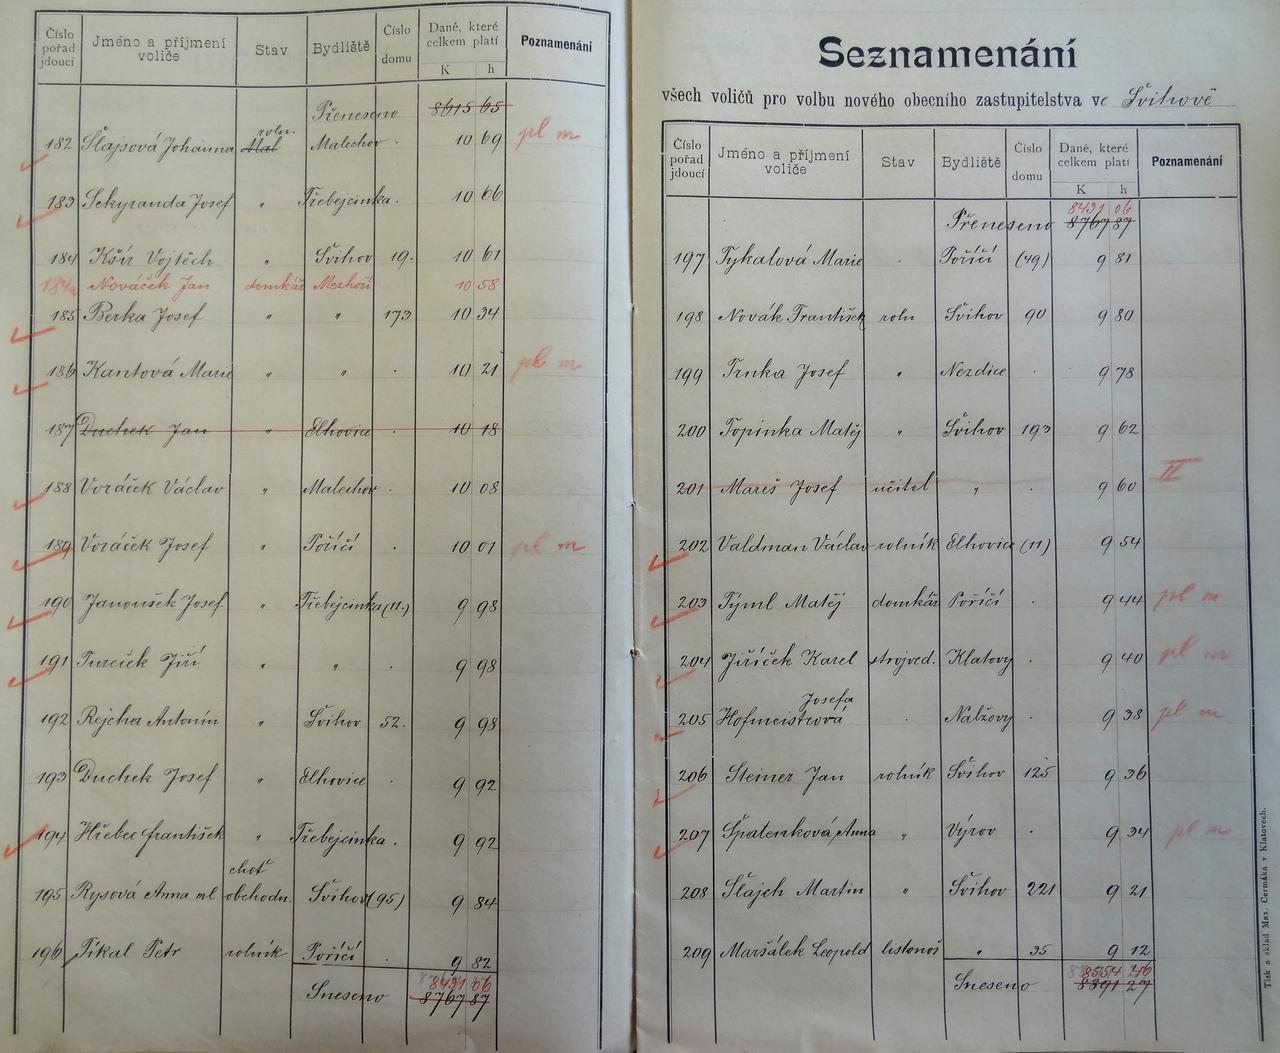 Číslo pořad jdoucí Jméno a příjmení voliče Stav Bydliště Číslo domu Daně, které celkem platí K h Poznamenání
Přeneseno 8615 65
182 Šlajsová Johanna Mal roln. Malechov . 10 69 pl m
183 Sekyranda Josef " Třebejcinka . 10 66
184 Kšír Vojtěch " Švihov 19. 10 61
184a Nováček Jan domkář Mezhoří 10 58
185 Berka Josef " " 173 10 34
186 Kantová Marie " " . 10 21 pl m
187 Duchek Jan " Elhovice . 10 18
188 Voráček Václav " Malechov . 10 08
189 Voráček Josef " Poříčí . 10 01 pl m
190 Janoušek Josef " Třebejcinka (11.) 9 98
191 Tureček Jiří " " . 9 98
192 Rejcha Antonín " Švihov 52. 9 98
193 Duchek Josef " Elhovice . 9 92
194 Hřebec František " Třebejcinka . 9 92
195 Rysová Anna ml choť obchodn. Švihov (95) 9 84
196 Tikal Petr rolník Poříčí . 9 82
Sneseno 8431 06
8767 87
Seznamenání
všech voličů pro volbu nového obecního zastupitelstva ve Švihově
Číslo pořad jdoucí Jméno a příjmení voliče Stav Bydliště Číslo domu Daně, které celkem platí K h Poznamenání
8431 06
Přeneseno 8767 87
197 Tykalová Marie . Poříčí (49) 9 81
198 Novák František roln Švihov 90 9 80
199 Trnka Josef " Nezdice . 9 78
200 Topinka Matěj " Švihov 193 9 62
201 Mareš Josef učitel " . 9 60 II
202 Valdman Václav rolník Elhovice (11) 9 54
203 Týml Matěj domkář Poříčí . 9 44 pl m
204 Jiříček Karel strojved. Klatovy . 9 40 pl m
205 Hofmeistrová Josefa . Nalžovy . 9 38 pl m
206 Steiner Jan rolník Švihov 125 9 36
207 Špatenková Anna " Výrov . 9 34 pl m
208 Šlajch Martin " Švihov 221 9 21
209 Maršálek Leopold listonoš " 35 9 12
8554 26
Sneseno 8891 27
Tisk a sklad Max. Čermáka v Klatovech.